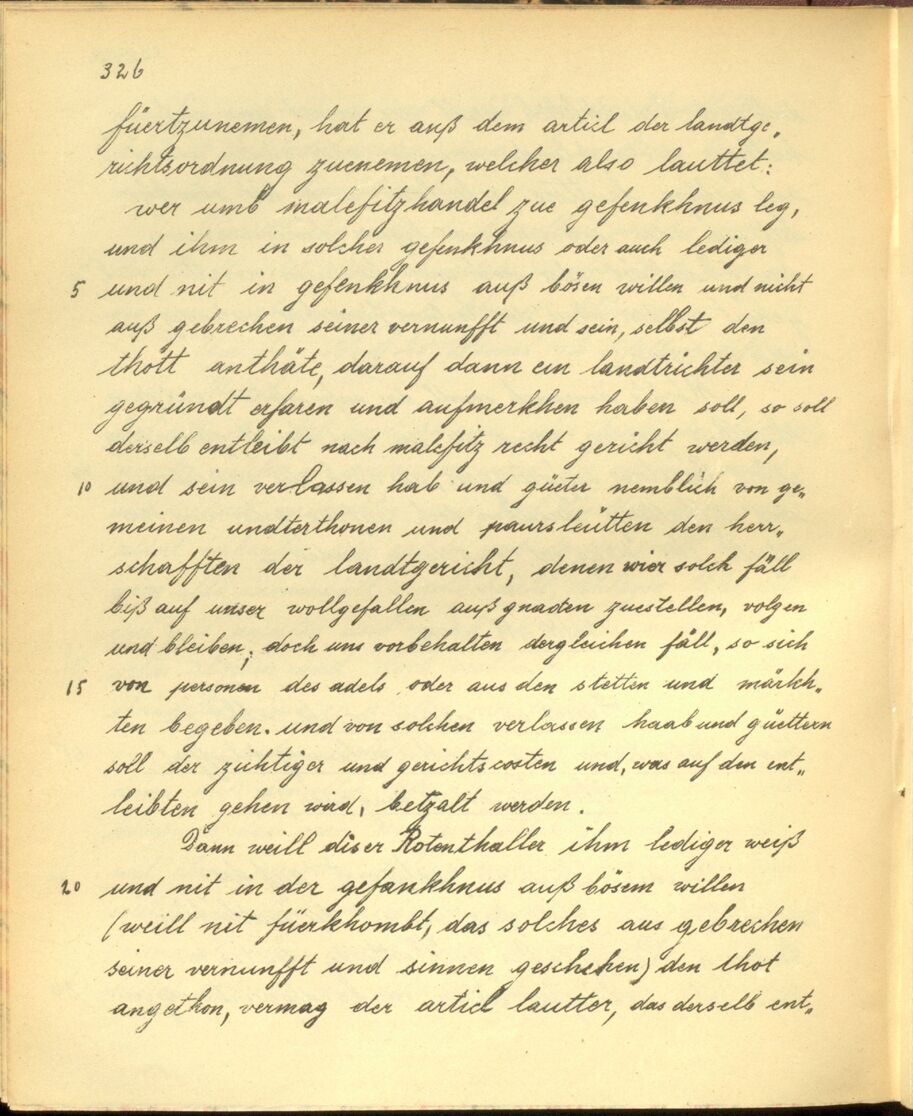 326
füertzunemen, hat er auß dem articl der landtge„
richtsordnung zuenemen, welcher also lauttet:
wer umb malefitzhandel zue gefenkhnus leg,
und ihm in solcher gefenkhnus oder auch lediger
5 und nit in gefenkhnus auß bösen willen und nicht
auß gebrechen seiner vernunfft und sein, selbst den
thott anthäte, darauf dann ein landtrichter sein
gegründt erfaren und aufmerkhen haben soll, so soll
derselb entleibt nach malefitz recht gericht werden,
10 und sein verlassen hab und güeter nemblich von ge„
meinen undterthonen und paursleütten den herr„
schafften der landtgericht, denen wier solch fäll
biß auf unser wollgefallen auß gnaden zuestellen, volgen
und bleiben; doch uns vorbehalten dergleichen fäll, so sich
15 von personen des adels oder aus den stetten und märkh„
ten begeben. und von solchen verlassen haab und güettern
soll der züchtiger und gerichtscosten und, was auf den ent„
leibten gehen wird, betzalt werden.
Dann weill diser Rotenthaller ihm lediger weiß
20 und nit in der gefankhnus auß bösem willen
(weill nit füerkhombt, das solches aus gebrechen
seiner vernunfft und sinnen geschehen) den thot
angethon, vermag der articl lautter, das derselb ent„